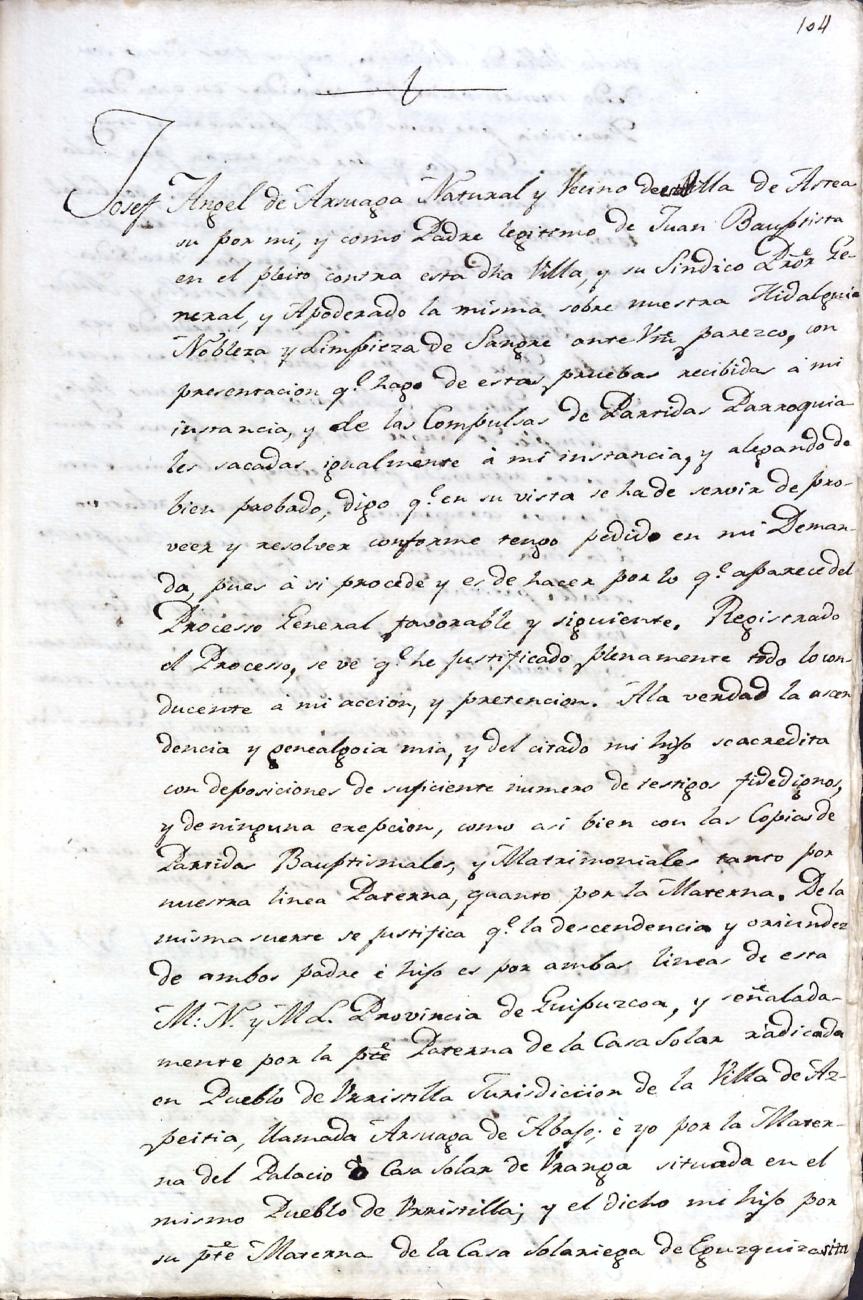 104
Josef Angel de Arsuaga Natural y Vecino de esta Villa de Astea
su por mi, y como Padre legitimo de Juan Bauptista
en el pleito contra esta dha Villa, y su Sindico Prõr Ge-
neral, y Apoderado la misma sobre nuestra Hidalguia
Nobleza y Limpieza de Sangre ante Vm̃ parezco, con
presentacion q.e hago de estas pruebas recibidas á mi
instancia, y de las Compulsas de Partidas Parroquia
les sacadas igualmente á mi instancia, y alegando de
bien probado, digo q.e en su vista se ha de servir de pro-
veer y resolver conforme tengo pedido en mi Deman-
da, pues á si procede y es de hacer por lo q.e aparece del
Processo General favorable y siguiente. Registrado
el Processo, se ve q.e he justificado plenamente todo lo con-
ducente á mi accion, y pretencion. Ala verdad la ascen
dencia y genealgoia mia, y del citado mi hijo se acredita
con deposiciones de suficiente numero de testigos fidedignos,
y de ninguna exepcion, como asi bien con las Copias de
Partidas Bauptismales, y Matrimoniales tanto por
nuestra linea Paterna, quanto por la Materna. De la
misma suerte se justifica q.e la descendencia y oriundez
de ambos padre é hijo es por ambas lineas de esta
M: N. y M L. Provincia de Guipuzcoa, y señalada-
mente por la pte Paterna de la Casa Solar radicada
en Pueblo de Vrristilla Jurisdiccion de la Villa de Az-
peitia, llamada Arsuaga de Abajo; é yo por la Mater-
na del Palacio ò Casa Solar de Vranga situada en el
mismo Pueblo de Vrristilla; y el dicho mi hijo por
su pte Materna de la Casa Solariega de Eguzquiza sita